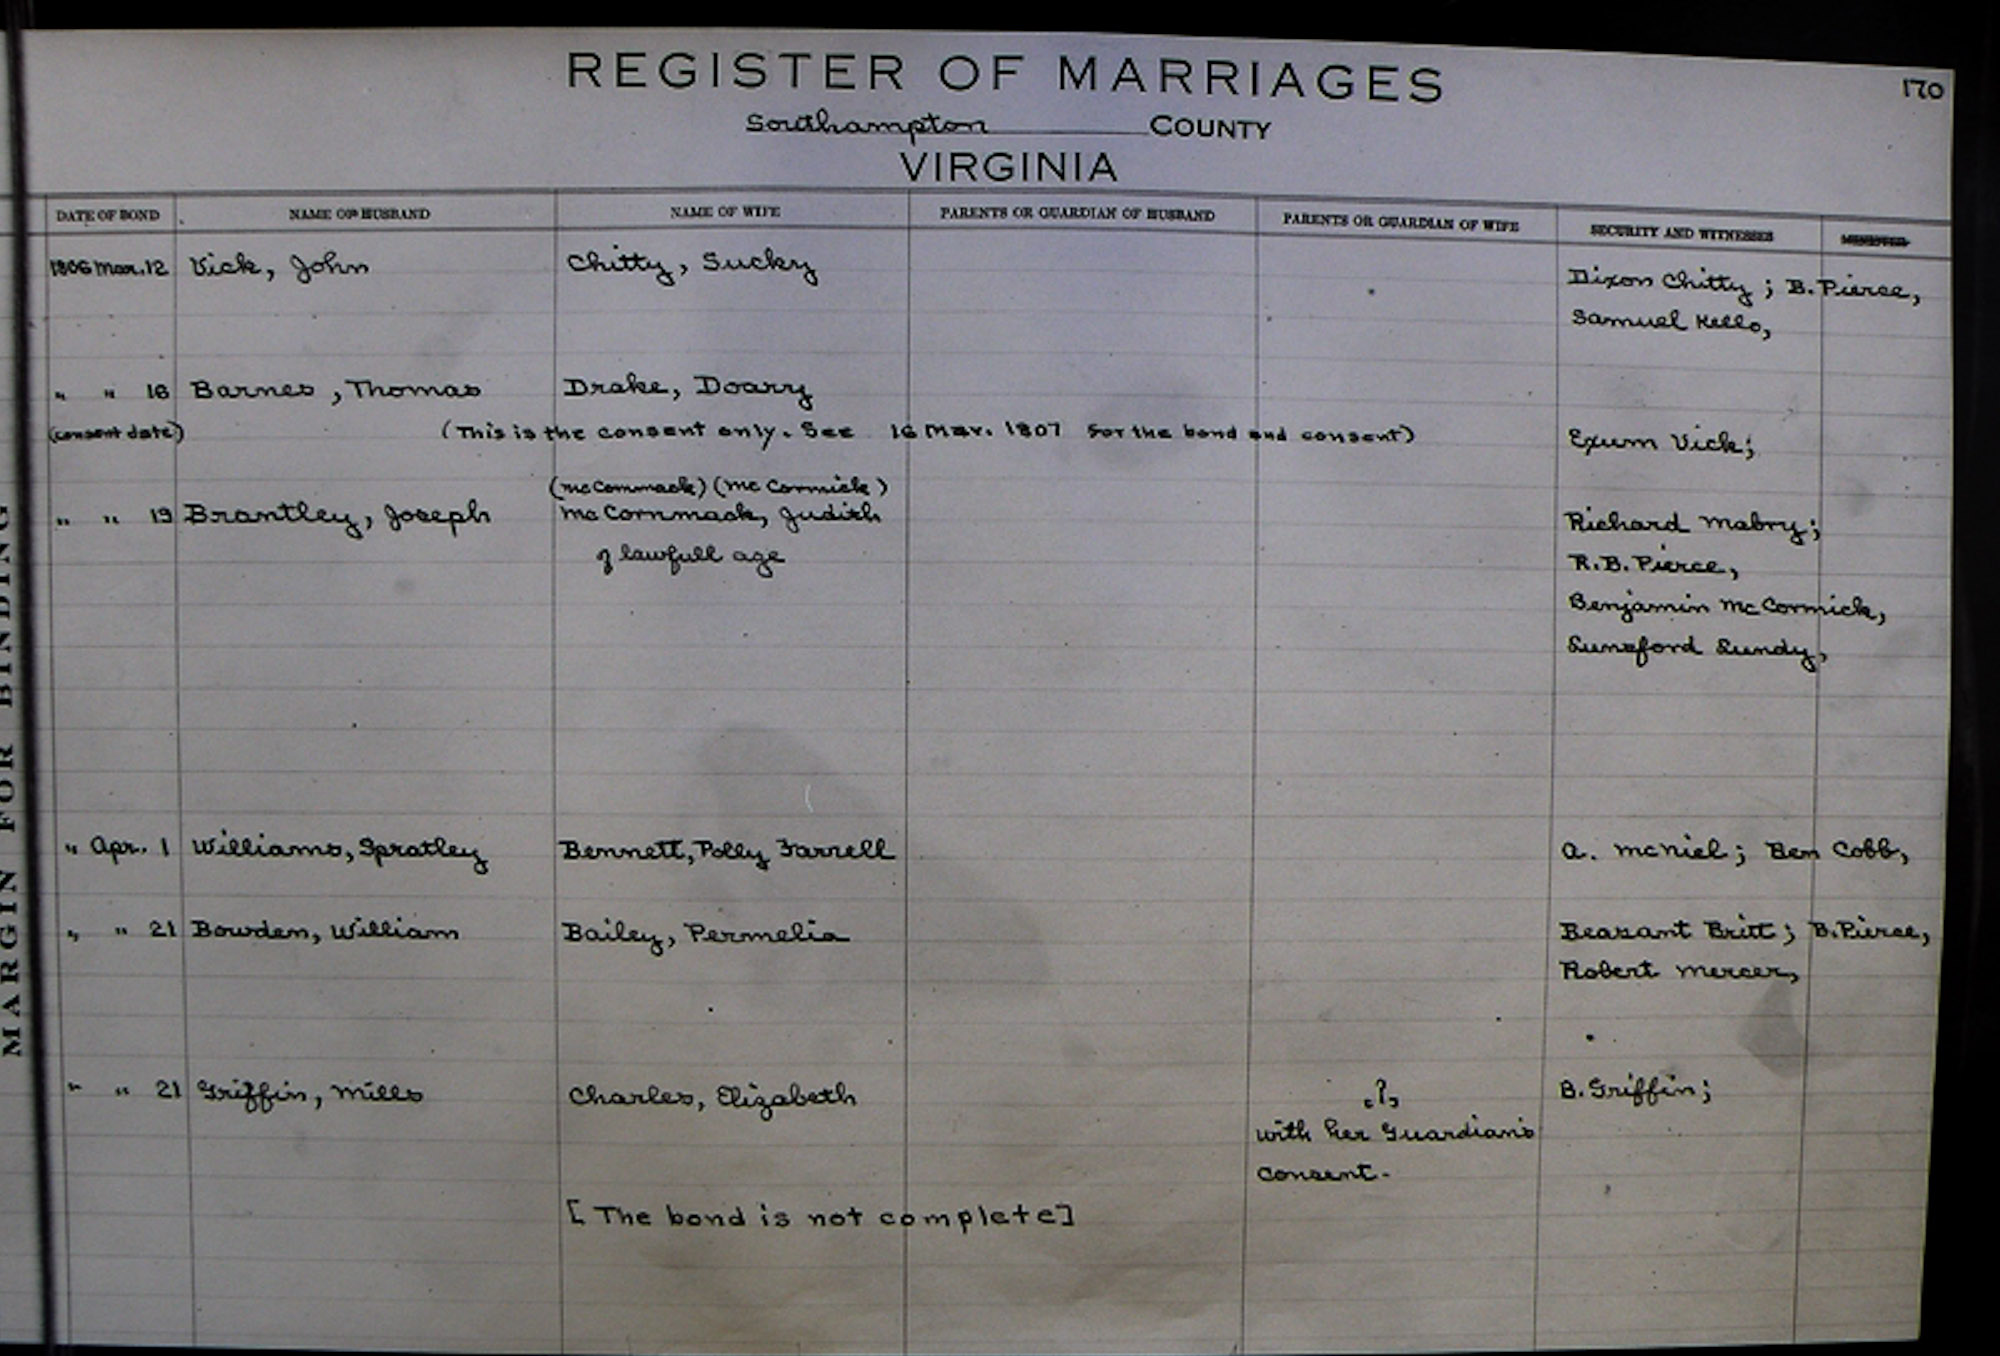 REGISTER OF MARRIAGES
170
Southampton COUNTY
VIRGINIA
DATE OF BOND NAME OF HUSBAND NAME OF WIFE PARENTS OR GUARDIAN OF HUSBAND PARENTS OR GUARDIAN OF WIFE SECURITY AND WITNESSES MINISTER
1806 Mar. 12 Vick, John Chitty, Sucky Dixon Chitty; B. Pierce,
Samuel Kello,
" " 16 Barnes, Thomas Drake, Doarry
(consent date) (This is the consent only. See 16 Mar. 1807 for the bond and consent) Exum Vick;
(McCommack) (McCormick)
" " 19 Brantley, Joseph McCornmack, Judith Richard Mabry;
of lawfull age R.B. Pierce,
Benjamin McCormick,
Lunsford Lundy,
" Apr. 1 Williams, Spratley Bennett, Polly Farrell A. McNiel; Ben Cobb,
" " 21 Bowden, William Bailey, Permelia Beasant Britt; B. Pierce,
Robert Mercer,
" " 21 Griffin, Mills Charles, Elizabeth ? B. Griffin;
with her Guardian's
consent-
[The bond is not complete]
MARGIN FOR BINDING